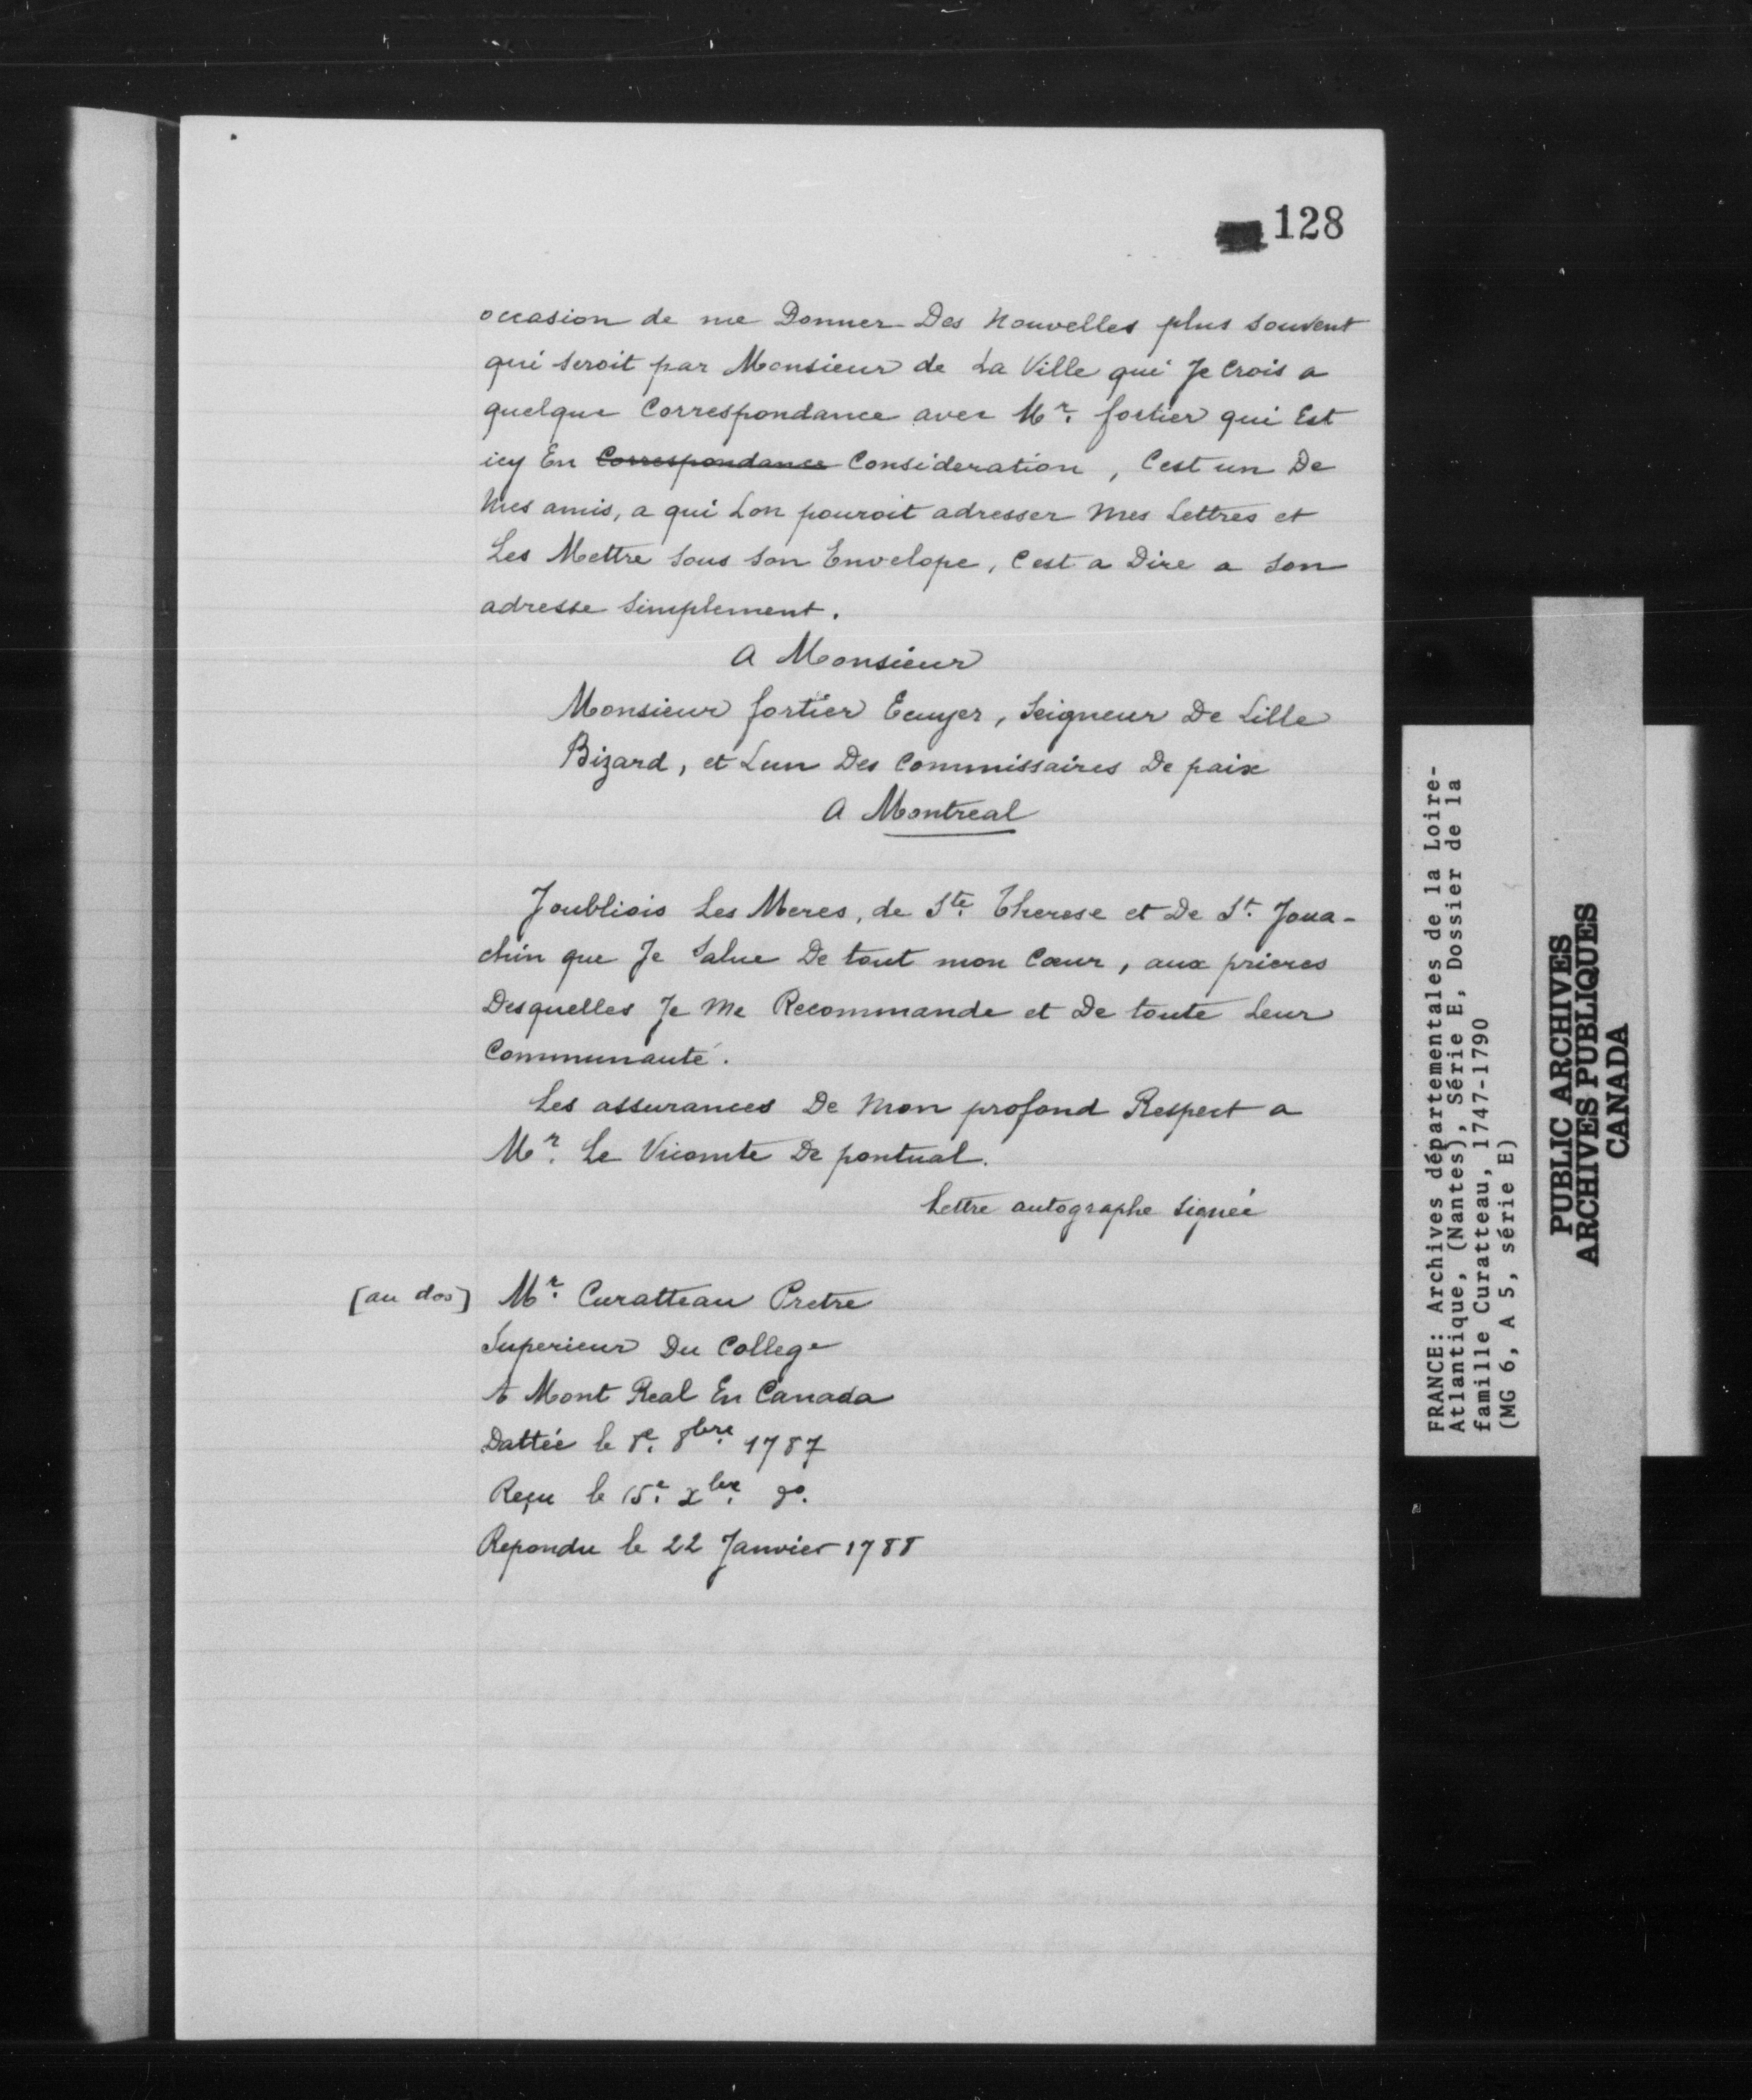 128
occasion de me Donner Des Nouvelles plus souvent
qui seroit par Monsieur de La Ville qui Je Crois a
quelque Correspondance avec Mr. fortier qui Est
icy En Correspondance Consideration, Cest un De
Mes amis, a qui Lon pouroit adresser Mes Lettres et
Les Mettre sous son Envelope, Cest a Dire a son
adresse simplement.
A Monsieur
Monsieur fortier Ecuyer, Seigneur De Lille
Bizard, et Lun Des Commissaires De paix
A Montreal
Joubliois Les Meres, de Ste. Therese et De St. Joua-
chin que Je Salue De tout mon Cœur, aux prieres
Desquelles Je Me Recommande et De toute Leur
Communauté.
Les assurances De Mon profond Respect a
Mr. Le Vicomte De pontual.
Lettre autographe signée
[au dos] Mr. Curatteau Pretre
Superieur Du College
A Mont Real En Canada
Dattée le 8e. 8bre. 1787
Reçu le 15e. xbre. do.
Repondu le 22 Janvier 1788
FRANCE: Archives départementales de la Loire-
Atlantique, (Nantes), Série E, Dossier de la
famille Curatteau, 1747-1790
(MG 6, A 5, série E)
PUBLIC ARCHIVES
ARCHIVES PUBLIQUES
CANADA